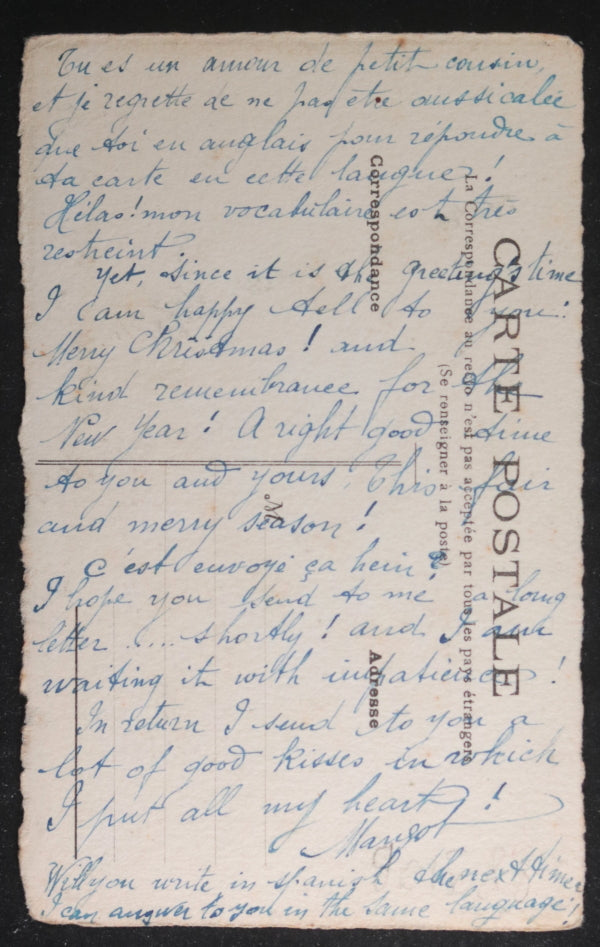 Tu es un amour de petit cousin,
et je regrette de ne pas etre aussi calée
que toi en anglais pour répondre à
ta carte en cette langue!
Hélas! mon vocabulaire est très
restreint.
Yet, since it is the greeting's time
I am happy tell to you:
Merry Christmas! and
kind remembrance for the
New Year! A right good time
to you and yours, this fair
and merry season!
C'est envoyé ça hein?
I hope you send to me a long
letter ..... shortly! and I am
waiting it with impatience!
In return I send to you a
lot of good kisses in which
I put all my heart!
Margot
Will you write in spanish the next time
I can answer to you in the same language!
CARTE POSTALE
La Correspondance au recto n'est pas acceptée par tous les pays étrangers
(Se renseigner à la poste)
Correspondance
Adresse
M